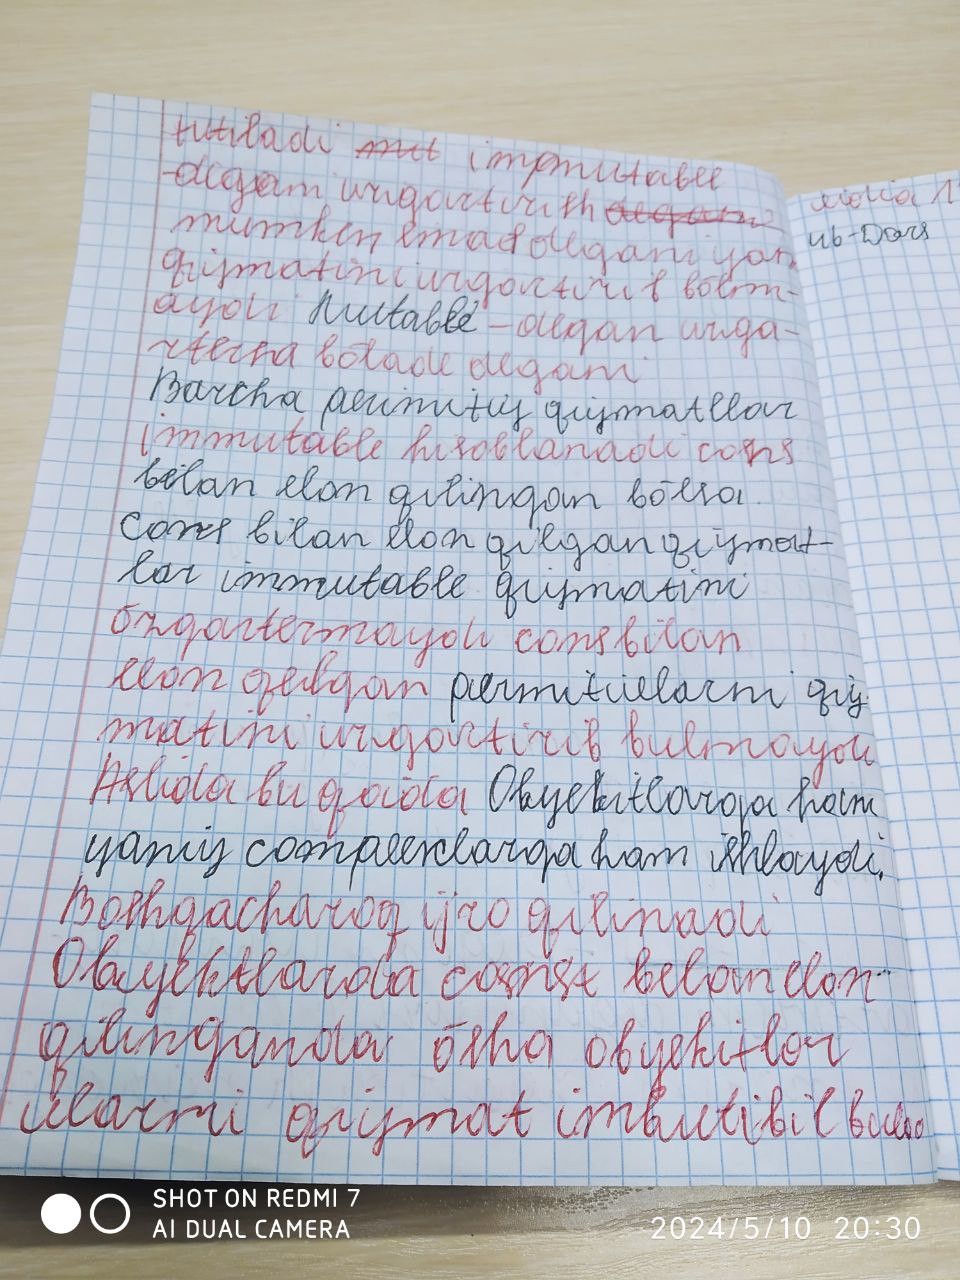 tutiladi mut immutable
-degani uzgartirish degani
mumken emas degani yani
qiymatini uzgartirib bölm-
aydi Mutable - degan uzga-
rterna bölade degani
Barcha perimitiv qiymatllar
immutable hisoblanadi cons
bilan elon qilingan bölsa.
cons bilan elon qilgan qiymat-
lar immutable qiymatini
özgartermaydi cons bilan
elon qelgan permitivelarni qiy
matini uzgartirib bulmaydi
Aslida bu qoida Obyekitlarga ham
yaniy complexlarga ham ishlaydi.
Boshqacharoq ijro qilinadi
Obyektlarda const belan elon
qilinganda ösha obyekitlar
elarni qiymat imbutibil bulso
rioia 1
ub-Dars
SHOT ON REDMI 7
AI DUAL CAMERA
2024/5/10 20:30